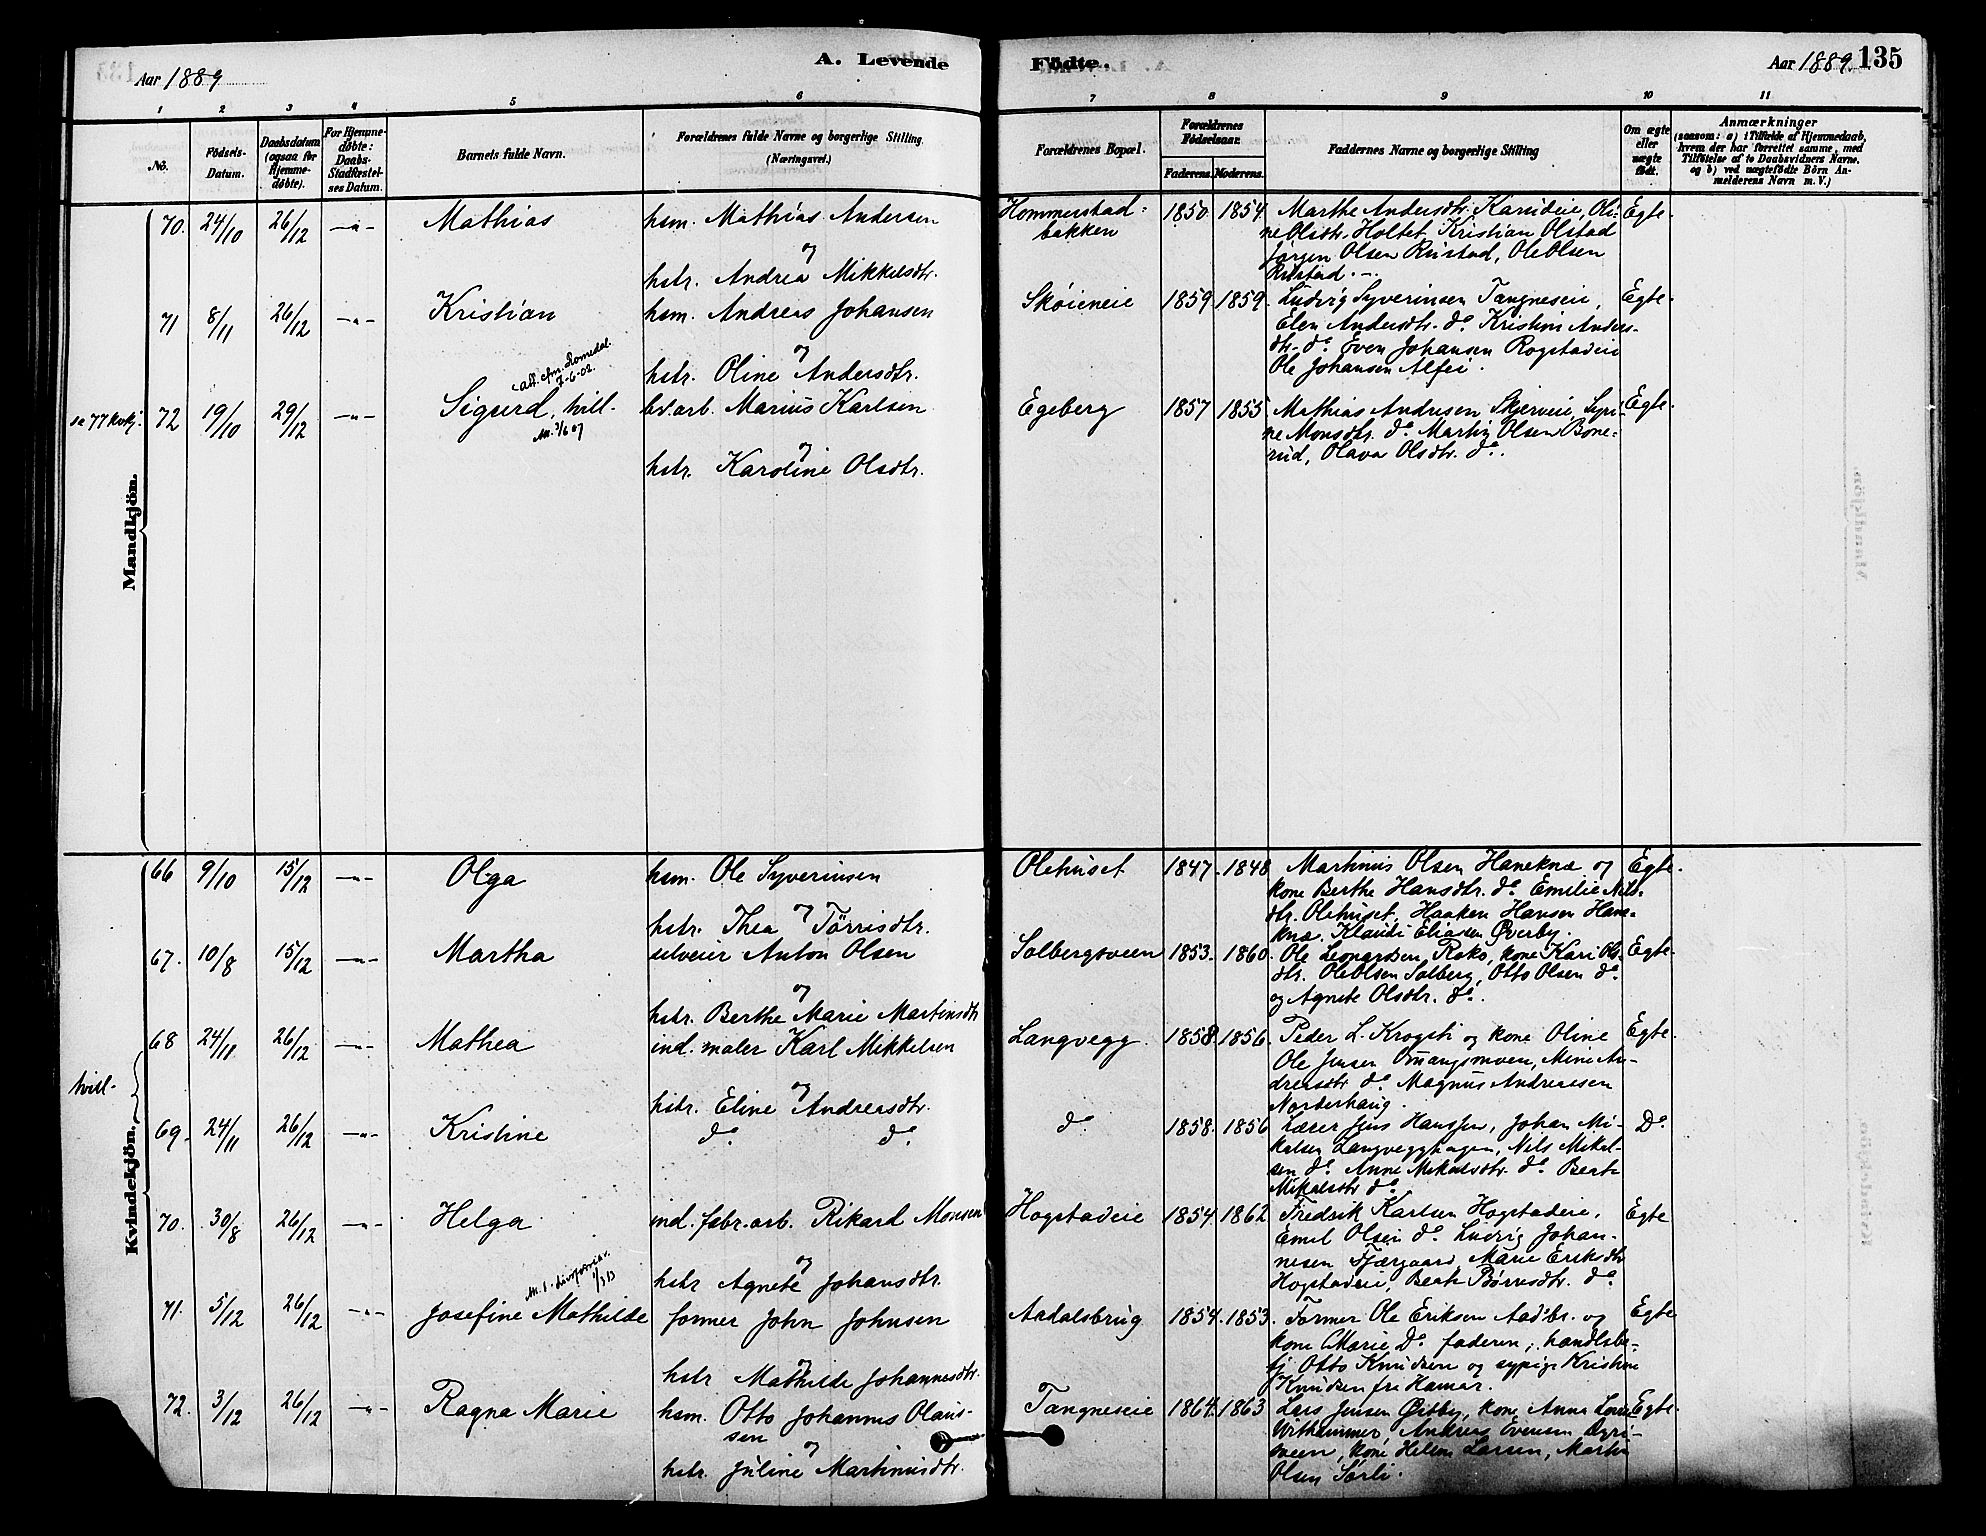 Aar 1889
A. Levende
Fødte.
Aar 1889.
135
1 2 3 4 5 6 7 8 9 10 11
No.
Fødsels-
Datum.
Daabsdatum
(ogsaa for
Hjemme-
døbte).
For Hjemme-
døbte:
Daabs-
Stadfæstel-
ses Datum.
Barnets fulde Navn.
Forældrenes fulde Navne og borgerlige Stilling
(Næringsvei.)
Forældrenes Bopæl.
Forældrenes
Fødselsaar.
Faderens. Moderens.
Faddernes Navne og borgerlige Stilling
Om ægte
eller
uægte
født.
Anmærkninger
(saasom: a) i Tilfælde af Hjemmedaab,
hvem der har forrettet samme, med
Tilføielse af to Daabsvidners Navne.
og b) ved uægtefødte Børn An-
melderens Navn m. V.)
Mandkjön.
70. 24/10 26/12 -"- Mathias hsm. Mathias Andersen
og
hstr. Andrea Mikkelsdtr.
Hommerstad-
bakken
1850 1854
Marthe Andersdtr. Karudeie, Oli-
ne Olsdtr. Holtet, Kristian Olstad
Jørgen Olsen Rustad, Ole Olsen
Rustad.
Egte-
71 8/11 26/12 -"- Kristian hsm. Andreas Johansen
og
hstr. Oline Andersdtr.
Skøieneie 1859 1859
Ludvig Syverinsen Tangneseie,
Elen Andersdtr. do. Kristine Anders-
dtr. do. Even Johansen Rogstadeie
Ole Johansen Alfei.
Egte-
att. cfm. Romedal.
7-6-02.
se 77 kvkj. 72 19/10 29/12 -"- Sigurd, tvill- bv. arb. Marius Karlsen
og
hstr. Karoline Olsdtr.
Egeberg 1857 1855
Mathias Andersen Skjerveie, Syri-
ne Monsdtr. do. Martin Olsen Bone-
rud, Olava Olsdtr. do.
Egte-
Kvindekjön.
66 9/10 15/12 -"- Olga hsm. Ole Syverinsen
og
hstr. Thea Tørrisdtr.
Olehuset 1847. 1848
Martinus Olsen Hanekne og
kone Berthe Hansdtr. do. Emilie Nils-
dtr. Olehuset, Haaken Hansen Hane-
kne. Klaudi Eliasen Øverby.
Egte-
67. 10/8 15/12 -"- Martha selveier Anton Olsen
og
hstr. Berthe Marie Martinsdtr
Solbergsveen 1853. 1860.
Ole Leonardsen Roko, kone Kari Ols-
dtr. Ole Olsen Solberg, Otto Olsen do.
og Agnete Olsdtr. do.
Egte-
tvill-
68 24/11 26/12 -"- Mathea ind. maler Karl Mikkelsen
og
hstr. Eline Andreasdtr.
Langvegg 1858. 1856.
Peder L. Krogsti og kone Oline
Ole Jensen Omangsmoen, Mine An-
dreasdtr do. Magnus Andreasen
Norderhaug.
Egte-
69. 24/11 26/12 -"- Kristine do. do.
do. 1858. 1856
Læser Jens Hanssen, Johan Mi-
kalsen Langvegghagen, Nils Mikal-
sen do. Anne Mikalsdtr. do. Beate
Mikalsdtr do.
Do.
70. 30/8 26/12 -"- Helga ind. fabr. arb. Rikard Monsen
og
hstr Agnete Johansdtr.
Hogstadeie 1854. 1862
Fredrik Karlsen Hogstadeie,
Emil Olsen do. Ludvig Johan-
nesen Fjærgaard, Marie Eriksdtr
Hogstadeie, Beate Børresdtr. do.
Egte
71. 5/12 26/12 -"- Josefine Mathilde former John Johnsen
og
hstr Mathilde Johannesdtr.
Aadalsbrug 1854. 1853.
Former Ole Eriksen Aad.br. og
kone Marie do. faderen, handlsbe-
tj. Otto Knudsen og sypige Kristine
Knudsen fra Hamar.
Egte
72. 3/12 26/12 -"- Ragna Marie hsm. Otto Johannes Olaus-
sen og
hstr. Juline Martinusdtr.
Tangneseie 1864. 1863
Lars Jensen Østby, kone Anna
Andreas Evensen
kone Helene Larsen, Martin
Olsen Sørli.
Egte-